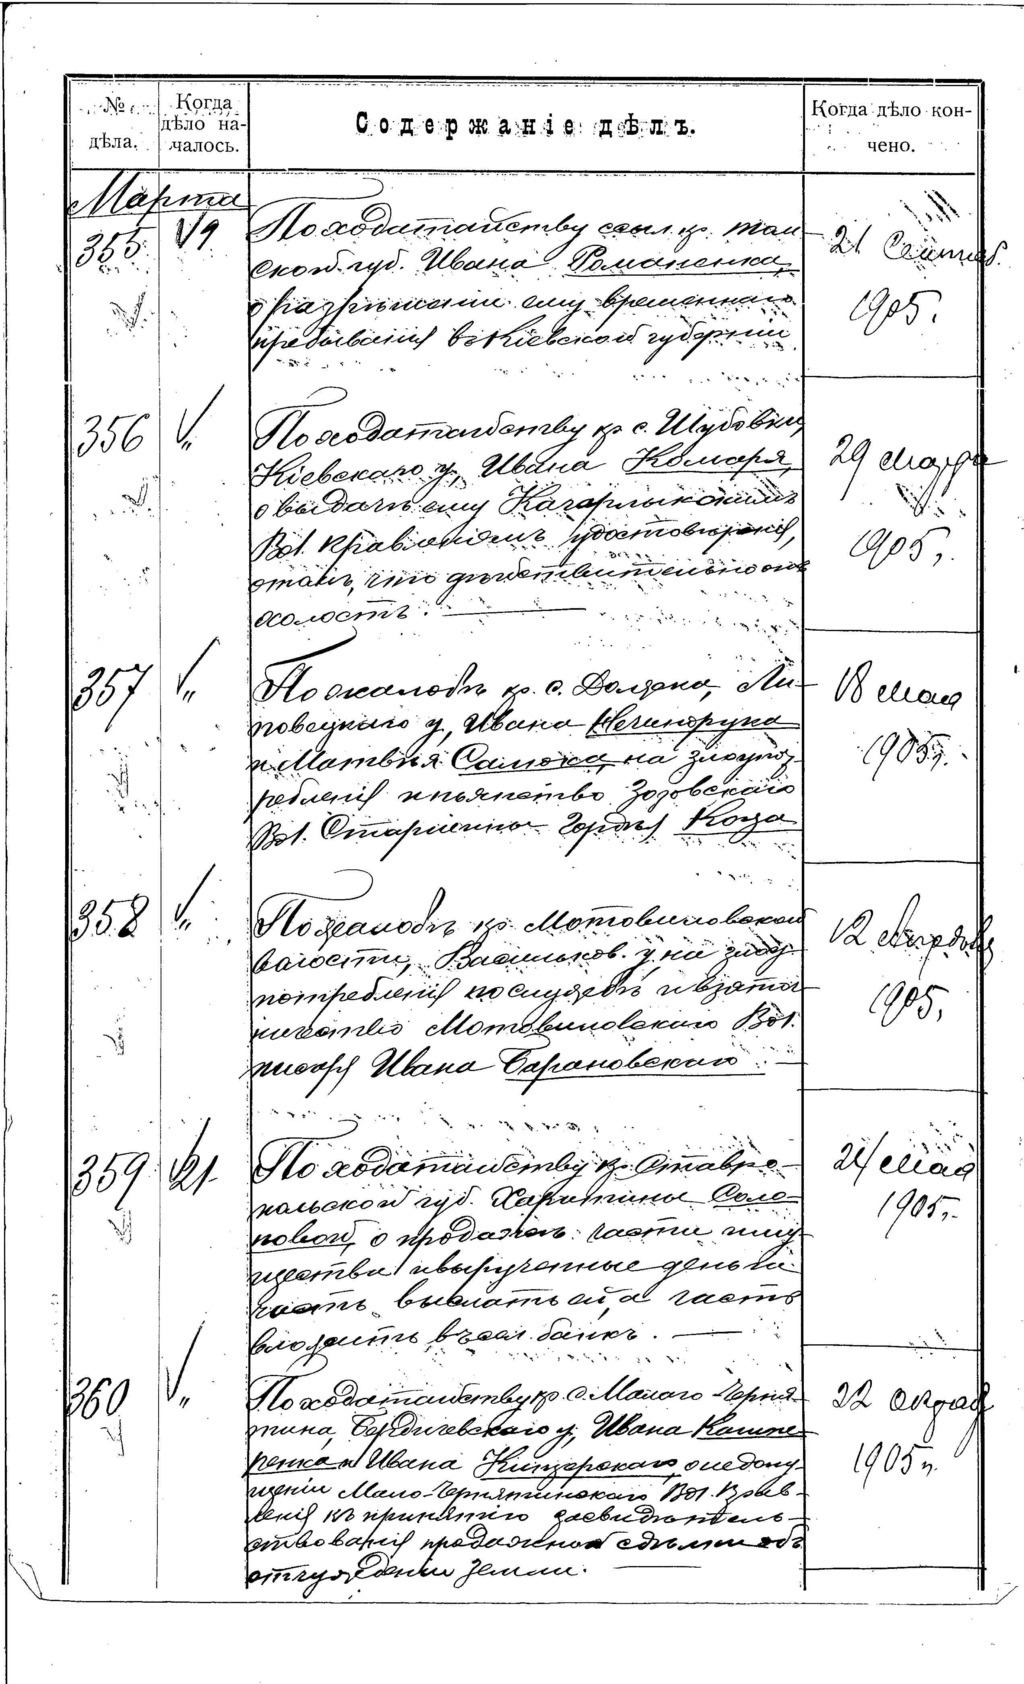 № дѣла.
Когда дѣло на-
чалось.
Содержаніе дѣлъ.
Когда дѣло кон-
чено.
Марта
355
19
По ходатайству ссыл. кр. Том
ской губ. Ивана Романенка,
о разрѣшеніи ему временнаго
пребыванія в Кіевской губерніи
21 Сентяб.
1905.
356
"
По ходатайству кр. с. Шубовки,
Кіевскаго у., Ивана Комаря,
о выдачѣ ему Кагарлыкскимъ
Вол. Правленіемъ удостовѣренія,
о томъ, что дѣйствительно онъ
холостъ.
29 Марта
1905г.
357
"
По жалобѣ кр. с. Должка, Ли-
повецкаго у., Ивана Нечипорука
и Матвѣя Самока, на злоупот-
ребленія и пьянство Зозовскаго
Вол. Старшины Гордѣя Коза
18 Мая
1905г.
358
"
По жалобѣ кр. Мотовиловской
волости, Васильков. у. на злоу-
потребленія по службѣ и взяточ-
ничество Мотовиловскаго Вол.
писаря Ивана Барановскаго
12 Апрѣля
1905г
359
21
По ходатайству кр. Ставро-
польской губ. Харитины Соло-
повой, о продажѣ части иму-
щества и вырученные деньги
часть выслать ей, а часть
вложить въ банкъ.
24 Мая
1905г.
360
"
По ходатайству кр. с. Малаго Черня-
тина, Бердичевскаго у., Ивана Кашпе-
ренка и Ивана о недопу-
щеніи Мало-Чернятинскаго Вол. Прав-
ленія къ принятію засвидѣтель-
ствованія продажной сдѣлки объ
отчужденіи земли.
22
1905г.